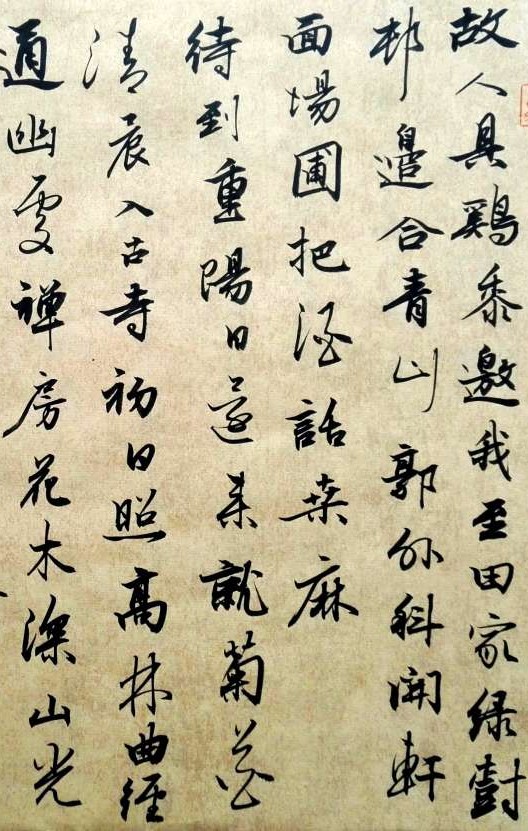 故人具鷄黍邀我至田家綠樹
邨邊合青山郭外斜開軒
面場圃把酒話桑麻
待到重陽日還来就菊花
清晨入古寺初日照高林曲徑
通幽處禅房花木深山光